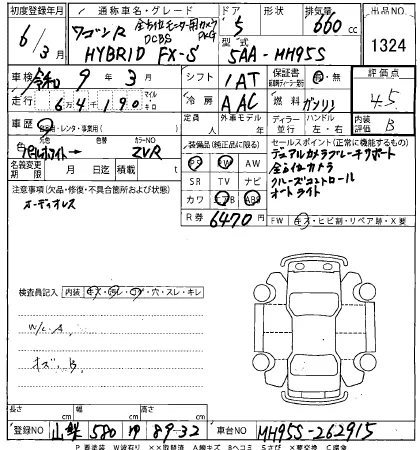 初度登録年月 通称車名・グレード ドア 形状 排気量 出品NO
6/3 ワゴンR 全方位モニター用カメラPKG DCBS HYBRID FX-S 5 660 cc 1324
型式 5AA-MH95S
車検 令和 9年 3月 シフト 1AT 保証書 有・無 評価点
走行 64190 マイル キロ 冷房 AAC 燃料 ガソリン 4.5
車歴 自家用・レンタ・事業用( ) 定員 人 外車モデル 年 ディーラー 並行 ハンドル 左・右 内装評価 B
色 パールホワイト 色替 カラーNO ZVR
装備品(純正品に限る) セールスポイント(正常に機能するもの)
PS PW AW デュアルカメラブレーキサポート
名義変更期限 月 日迄 積載量 t
SR TV ナビ 全方位カメラ
カワ エアB ABS クルーズコントロール
オートライト
注意事項(欠品・修復・不具合箇所および状態)
オーディオレス
R券 6470円
FW キズ・ヒビ割・リペア跡・X要
検査員記入 内装 キズ・汚レ・コゲ・穴・スレ・キレ
W/C.A
キズ.B
長さ cm 幅 cm 高さ cm
登録NO 山梨 580 ゆ 89-32 車台NO MH95S-262915
P 要塗装 W波有り ××取替済 A線キズ Bヘコミ Sさび ×要交換 C腐食